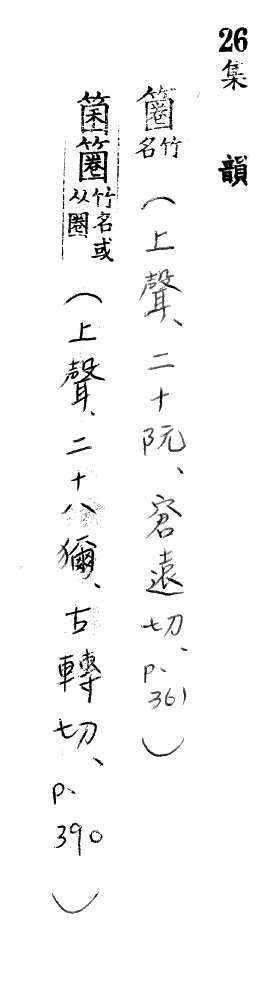 26集 韻
䉂竹名(上聲、二十阮、窘遠切、p.361)
䉂竹名或从圈(上聲、二十八獮、古轉切、p.390)